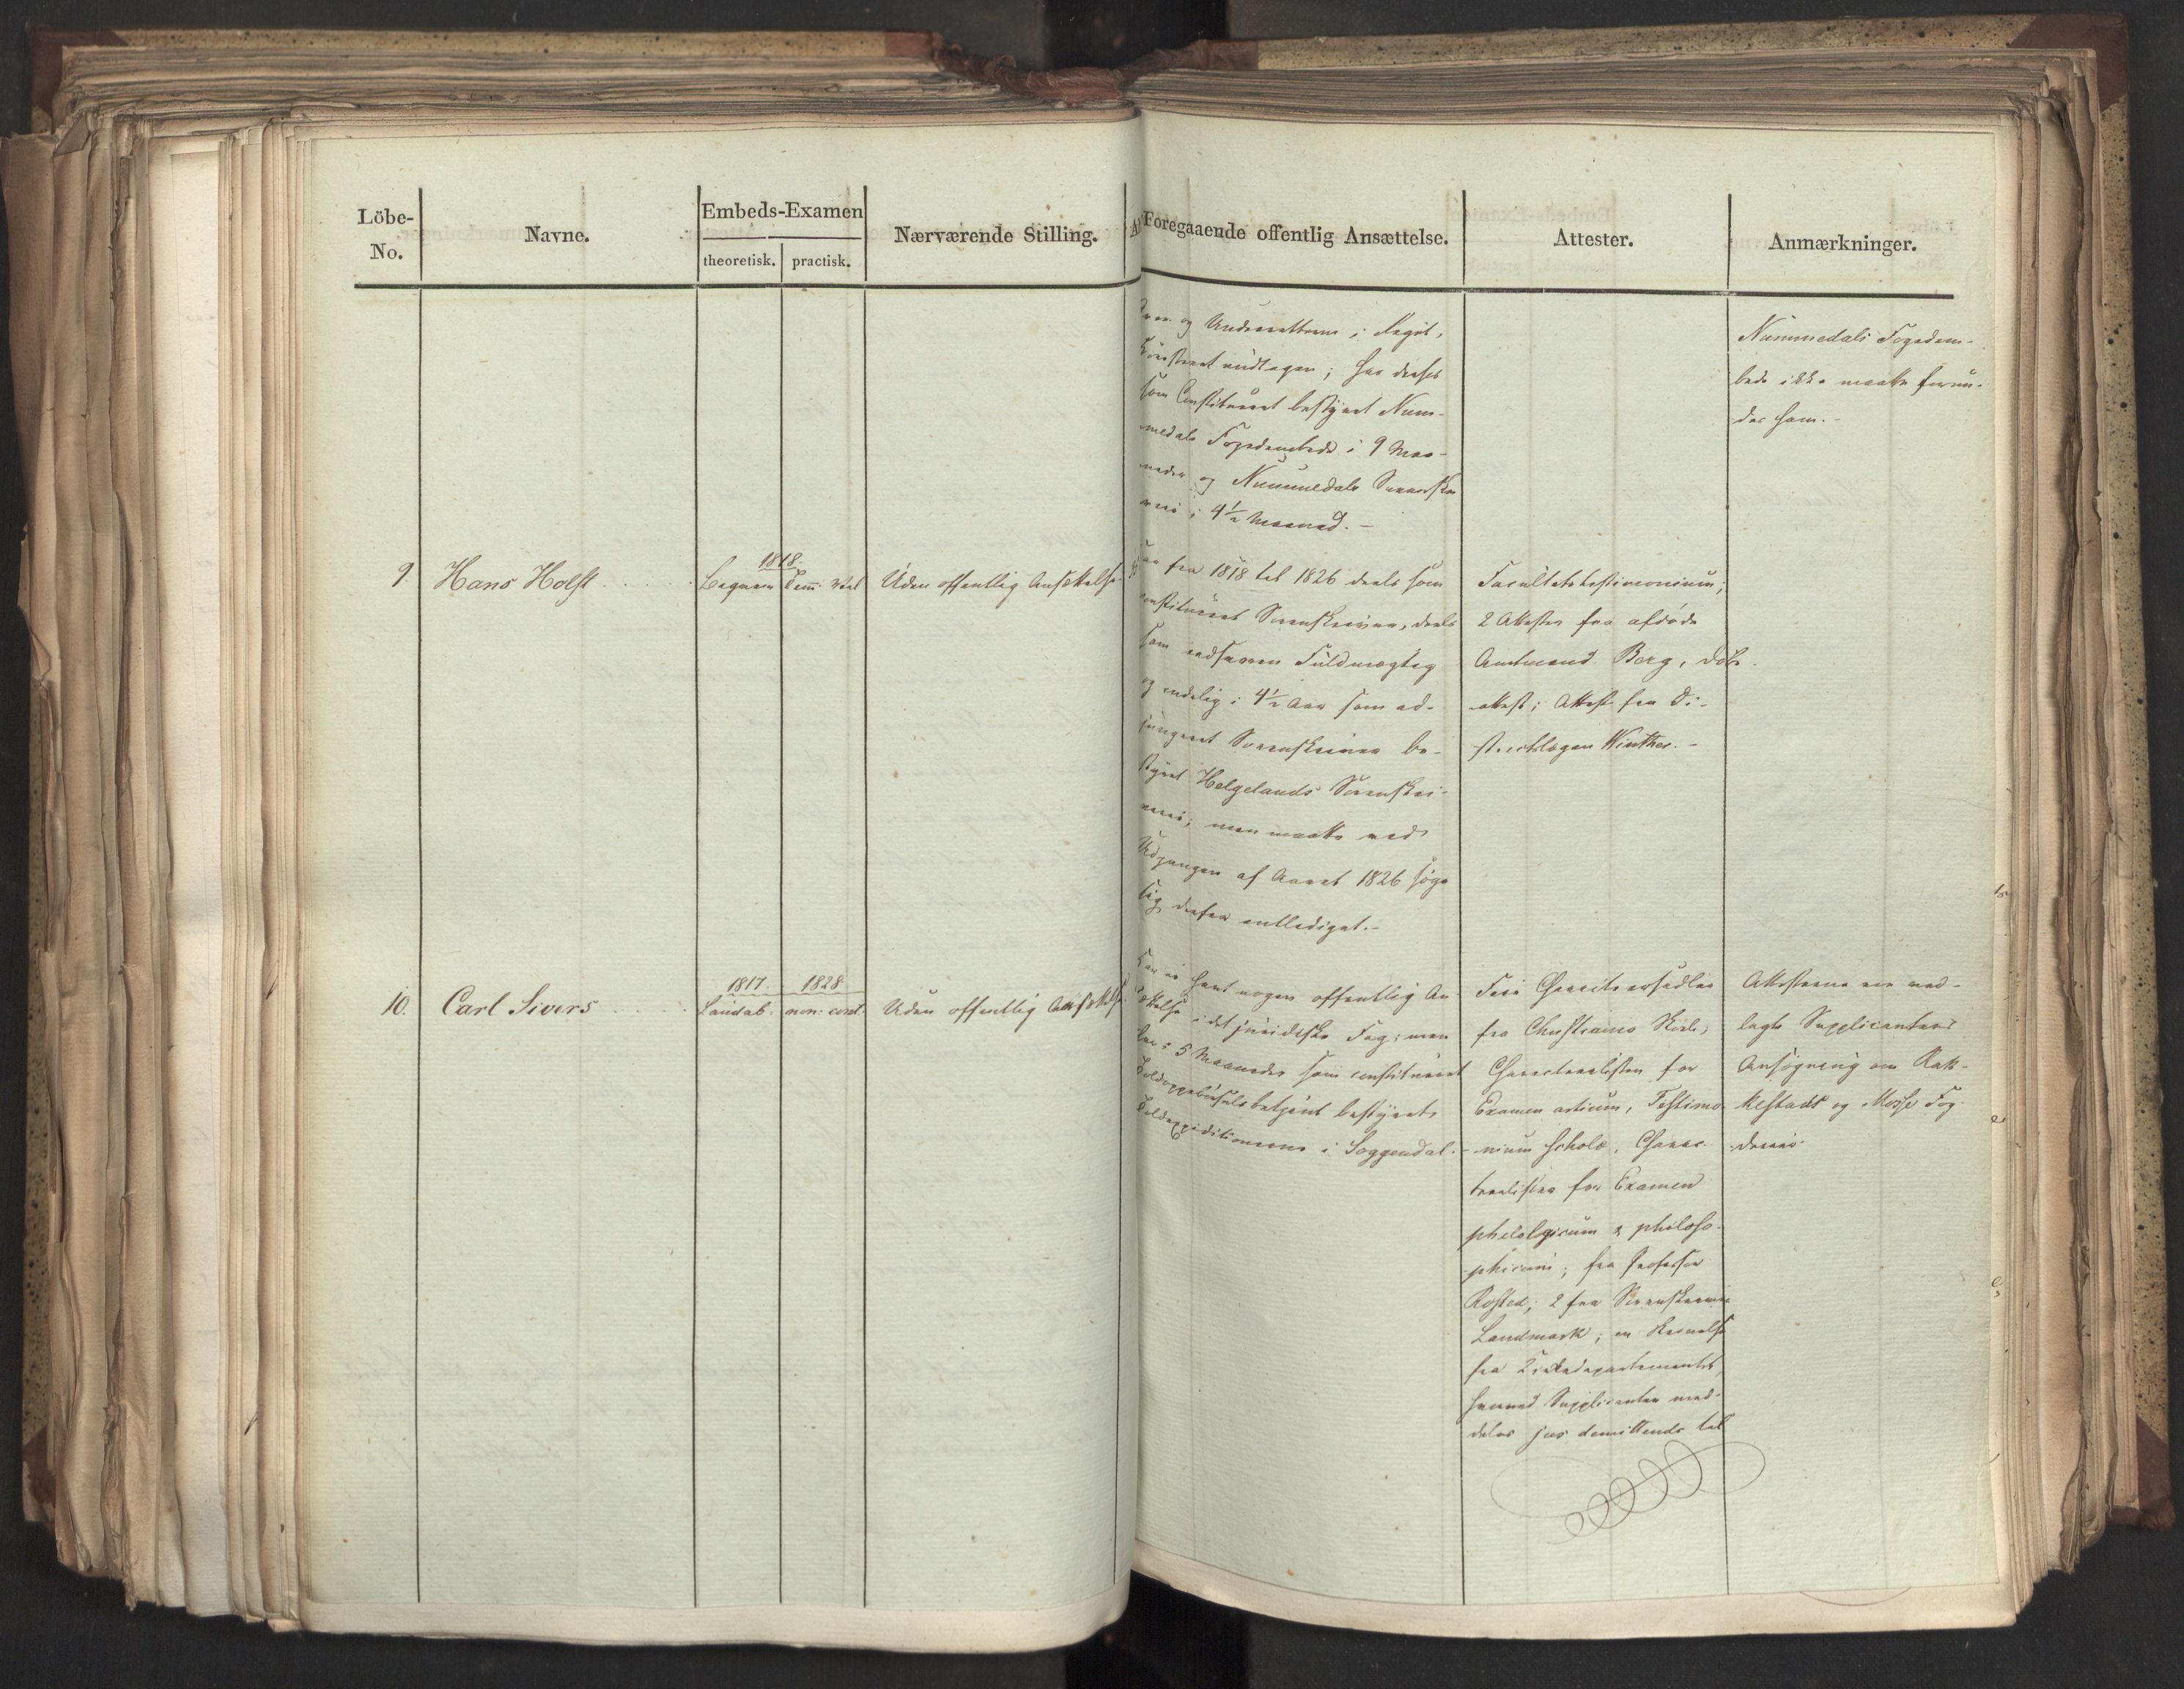 Löbe-No.
Navne.
Embeds-Examen
theoretisk. practisk.
Nærværende Stilling.
Foregaaende offentlig Ansættelse.
Attester.
Anmærkninger.
og Underretterne i Regil.
Конstreret undtagen; har derhos
som Constitueret bestyret Num-
medals Fogedembede i 9 Maa-
neder og Nummedals Sorenskri-
veri i 4½ Maaned.-
Nummedals Fogedem-
bede ikke maatte forun-
des ham.-
9. Hans Holst
1818.
Beqvem Tem: Vel
Uden offentlig Ansættelse.
Har fra 1818 til 1826 deels som
constitueret Sorenskriver, deels
som edsvoren Fuldmægtig
og endelig i 4½ Aar som ad-
jungeret Sorenskriver be-
styret Helgelands Sorenskri-
veri; men maatte ved
Udgangen af Aaret 1826 søge
sig derfra entlediget.-
Facultetstestimonium;
2 Attester fra afdøde
Amtmand Berg, Döbe-
attest; Attest fra Di-
strictslægen Winther.-
10. Carl Sivers
1817. 1828
Laudab. non: cont.
Uden offentlig Ansættelse.
Har ei havt nogen offentlig An-
sættelse i det juridiske Fag; men
har i 5 Maaneder som constitueret
Toldoppebørselsbetjent bestyret
Toldexpeditionerne i Soggendal.-
fra Christiania Skole;
Characteerlisten for
Examen artium, Testimo-
nium scholæ, Charac-
teerlisten for Examen
philologicum & philoso-
phicum; fra Professor
Rosted; 2 fra Sorenskriver
Landmark; en Skrivelse
fra Kirkedepartementet,
hvorved Supplicanten med-
deles jus demittendi til
Attesterne ere ved-
lagte Supplicantens
Ansøgning om Rak-
kestads og Mosse Fog-
derie.